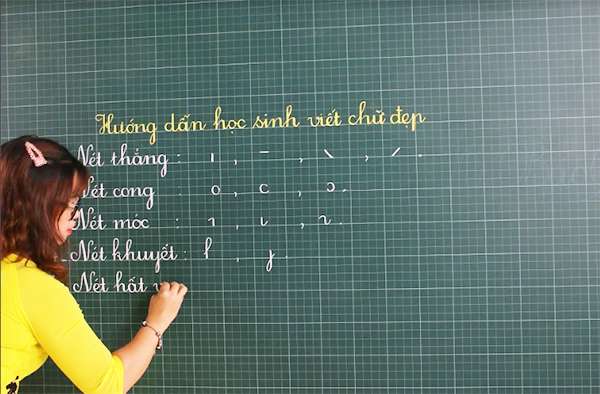 Hướng dẫn học sinh viết chữ đẹp
Nét thẳng : ı , – , \ , / .
Nét cong : o , c , ɔ .
Nét móc : ɿ , ɩ , ɿ .
Nét khuyết : l , y .
Nét hất